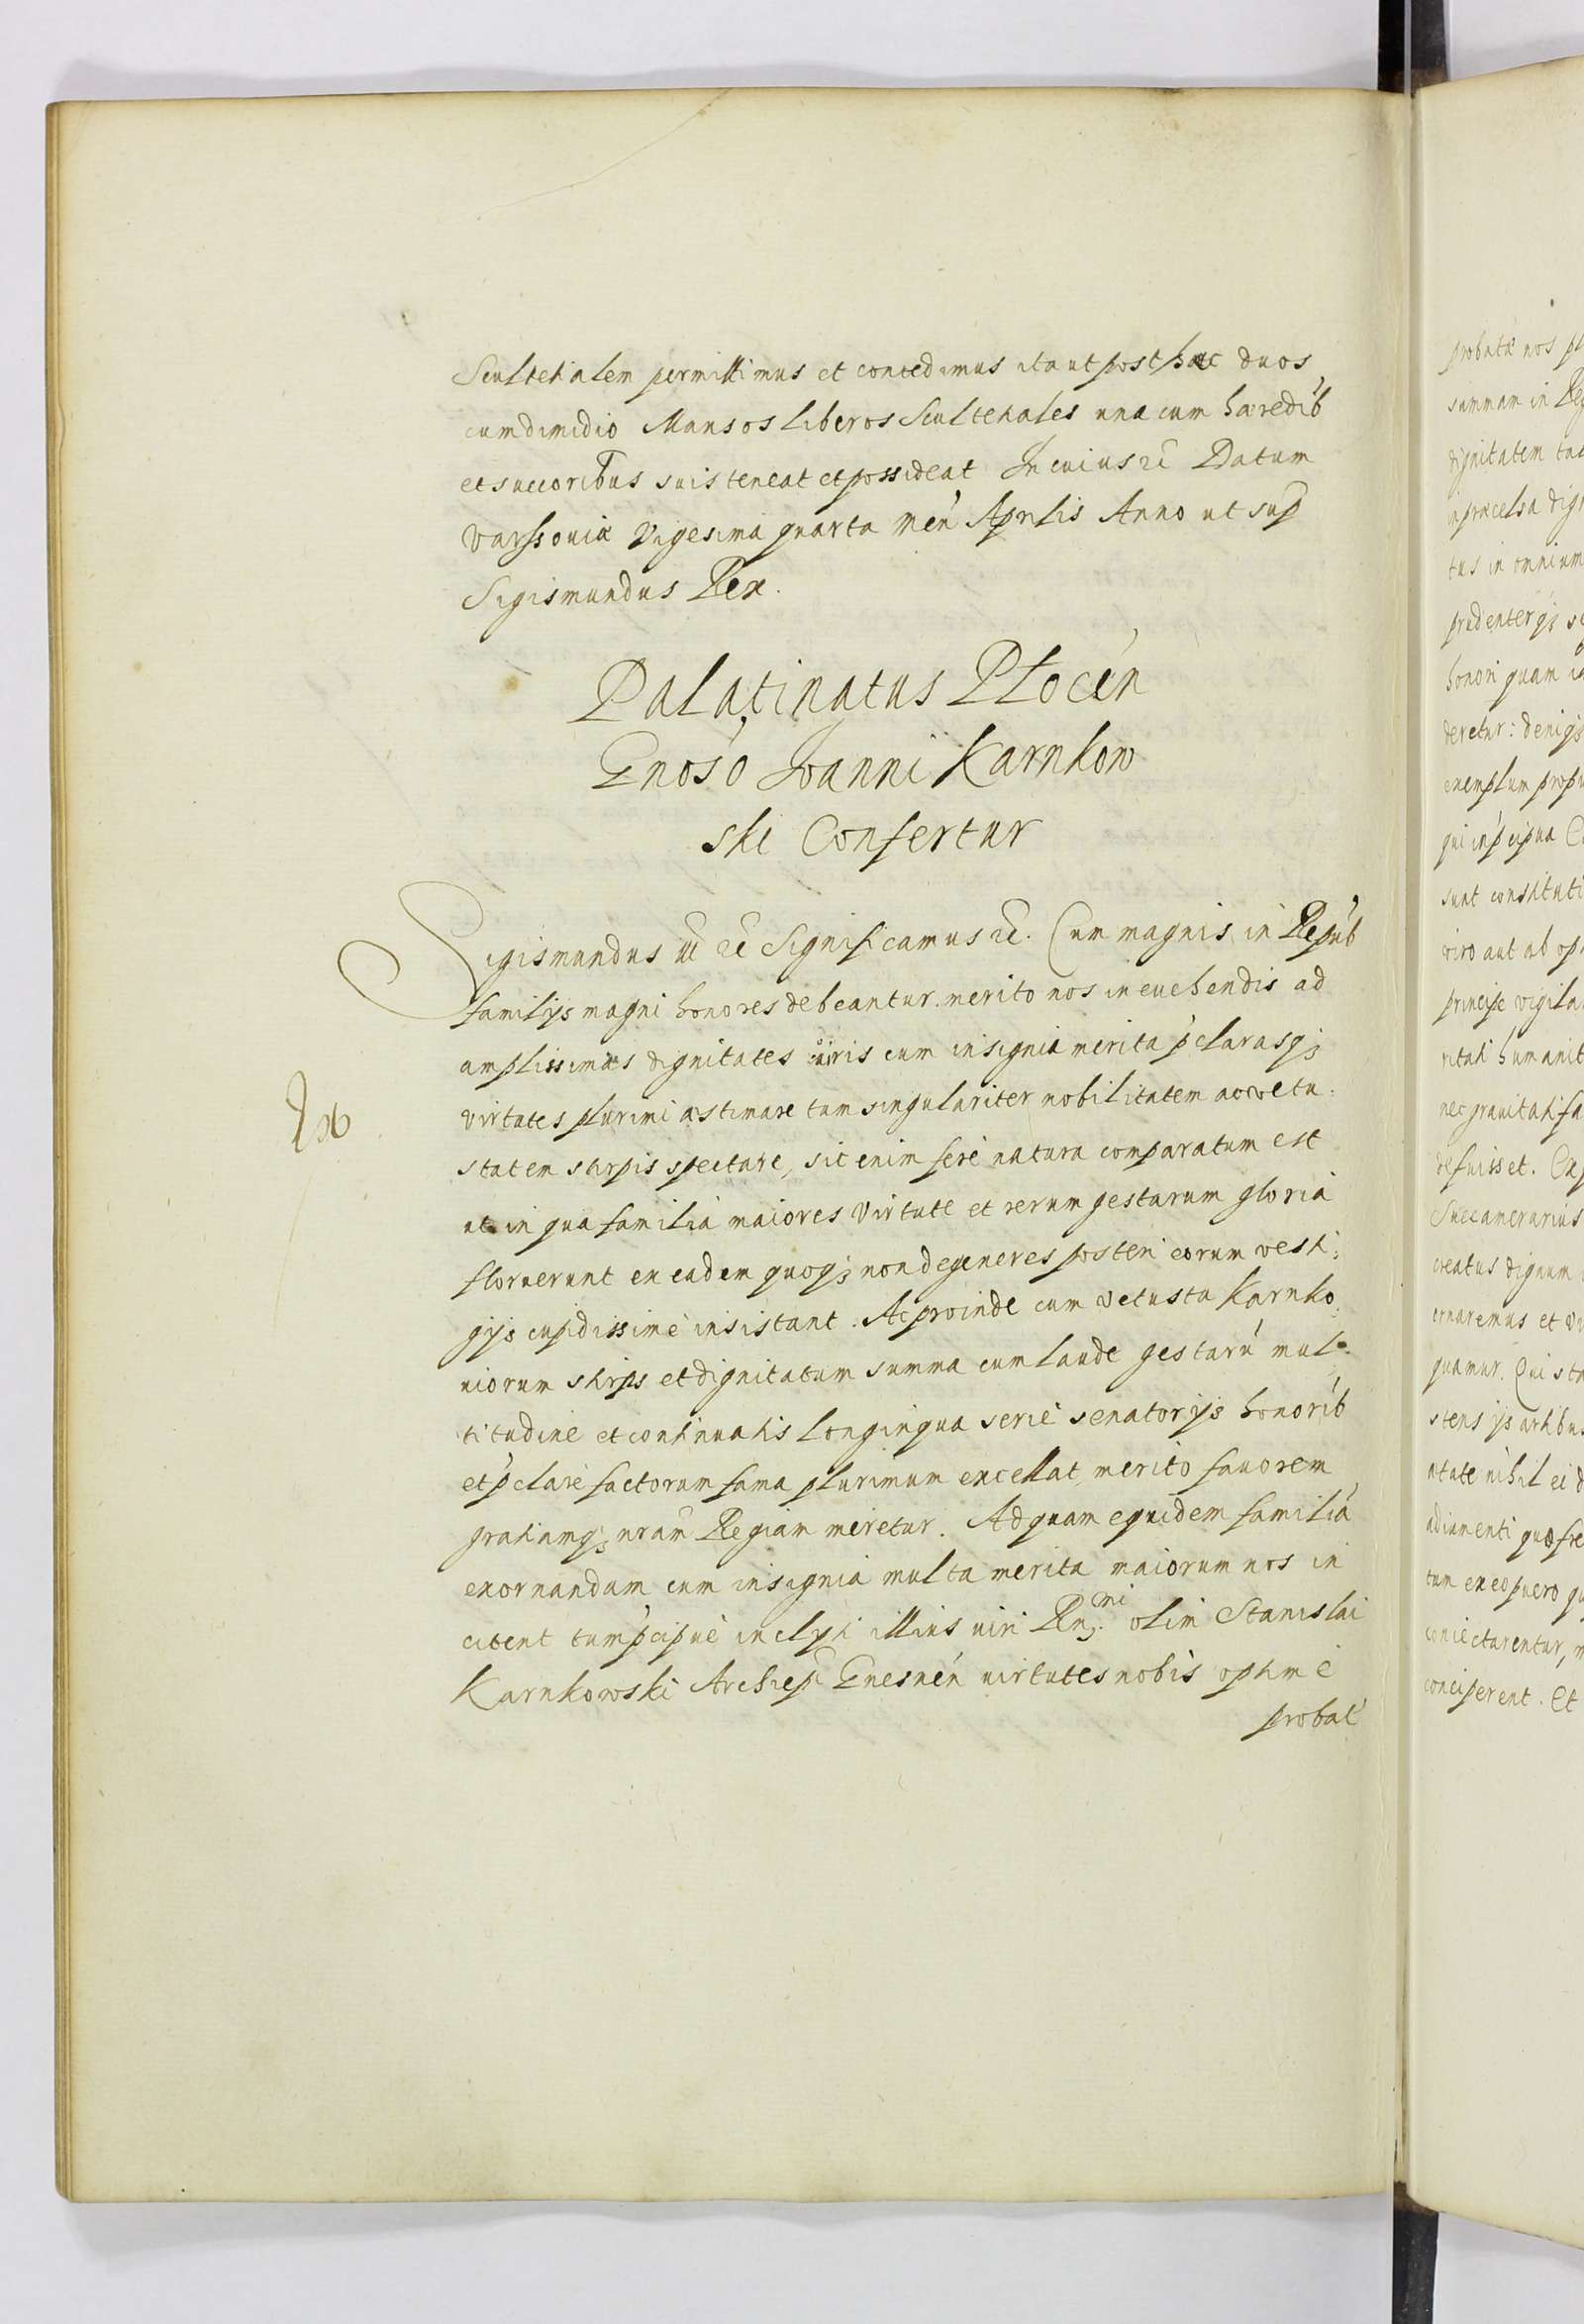 Scultetialem permittimus et concedimus ita ut posthac duos
cum dimidio Mansos liberos Scultetiales una cum haeredib
et succoribus suis teneat et possideat In cuius rei Datum
Varssoviae Vigesima quarta Men Aprilis Anno ut sup
Sigismundus Rex.
Palatinatus Plocen
Gnoso Joanni Karnkow
ski Confertur
Sigismundus III etc Significamus etc. Cum magnis in Repub
familijs magni honores debeantur merito nos in euehendis ad
amplissimas dignitates uiris cum insignia merita pclarasq;
virtutes plurimi aestimare tum singulariter nobilitatem ac vetu:
statem stirpis spectare, sic enim fere natura comparatum est
ut in qua familia maiores virtute et rerum gestarum gloria
floruerunt ex eadem quoq; non degeneres posteri eorum vesti:
gijs cupidissime insistant. Ac proinde cum vetusta Karnko:
uiorum stirps et dignitatum summa cum laude gestaru mul:
titudine et continuatis longinqua serie senatorijs honorib
et pclare factorum fama plurimum excellat, merito fauorem
gratiamq; nram Regiam meretur. Ad quam equidem familia
exornandam cum insignia multa merita maiorum nos in
citent tum pcipue inclyti illius uiri Rndmi olim Stanislai
Karnkowski Archiepi Gnesnen uirtutes nobis optime
probat
probatae nos
summam in
dignitatem
praecelsa
tus in omnium
prudenterq;
honori quam
deretur: deniq;
exemplum
qui in pcipua
sunt constituti
viro aut ab
principe
humanit
nec grauitati
defuisset.
Succamerarius
creatus dignum
ornaremus et
quamur. Qui
stens ijs artibus
atate nihil ei
adiumenti quo
tum ex eo puero
coniectarentur,
conciperent. Et